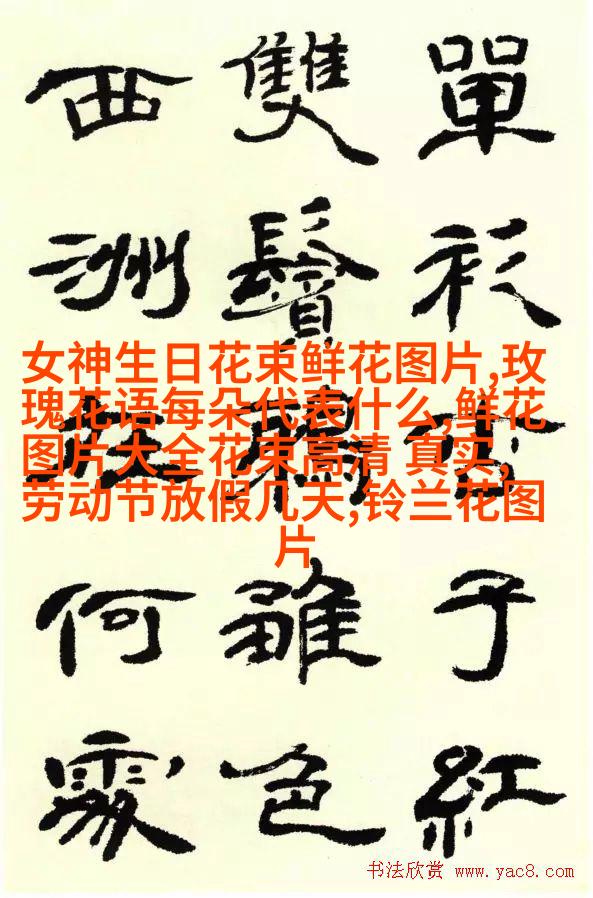 單衫子紅
雙鬢雛色
西洲在何處
女神生日花束鲜花图片,玫
瑰花语每朵代表什么,鲜花
图片大全花束高清 真实,
劳动节放假几天,铃兰花图
片
书法欣赏 www.yac8.com